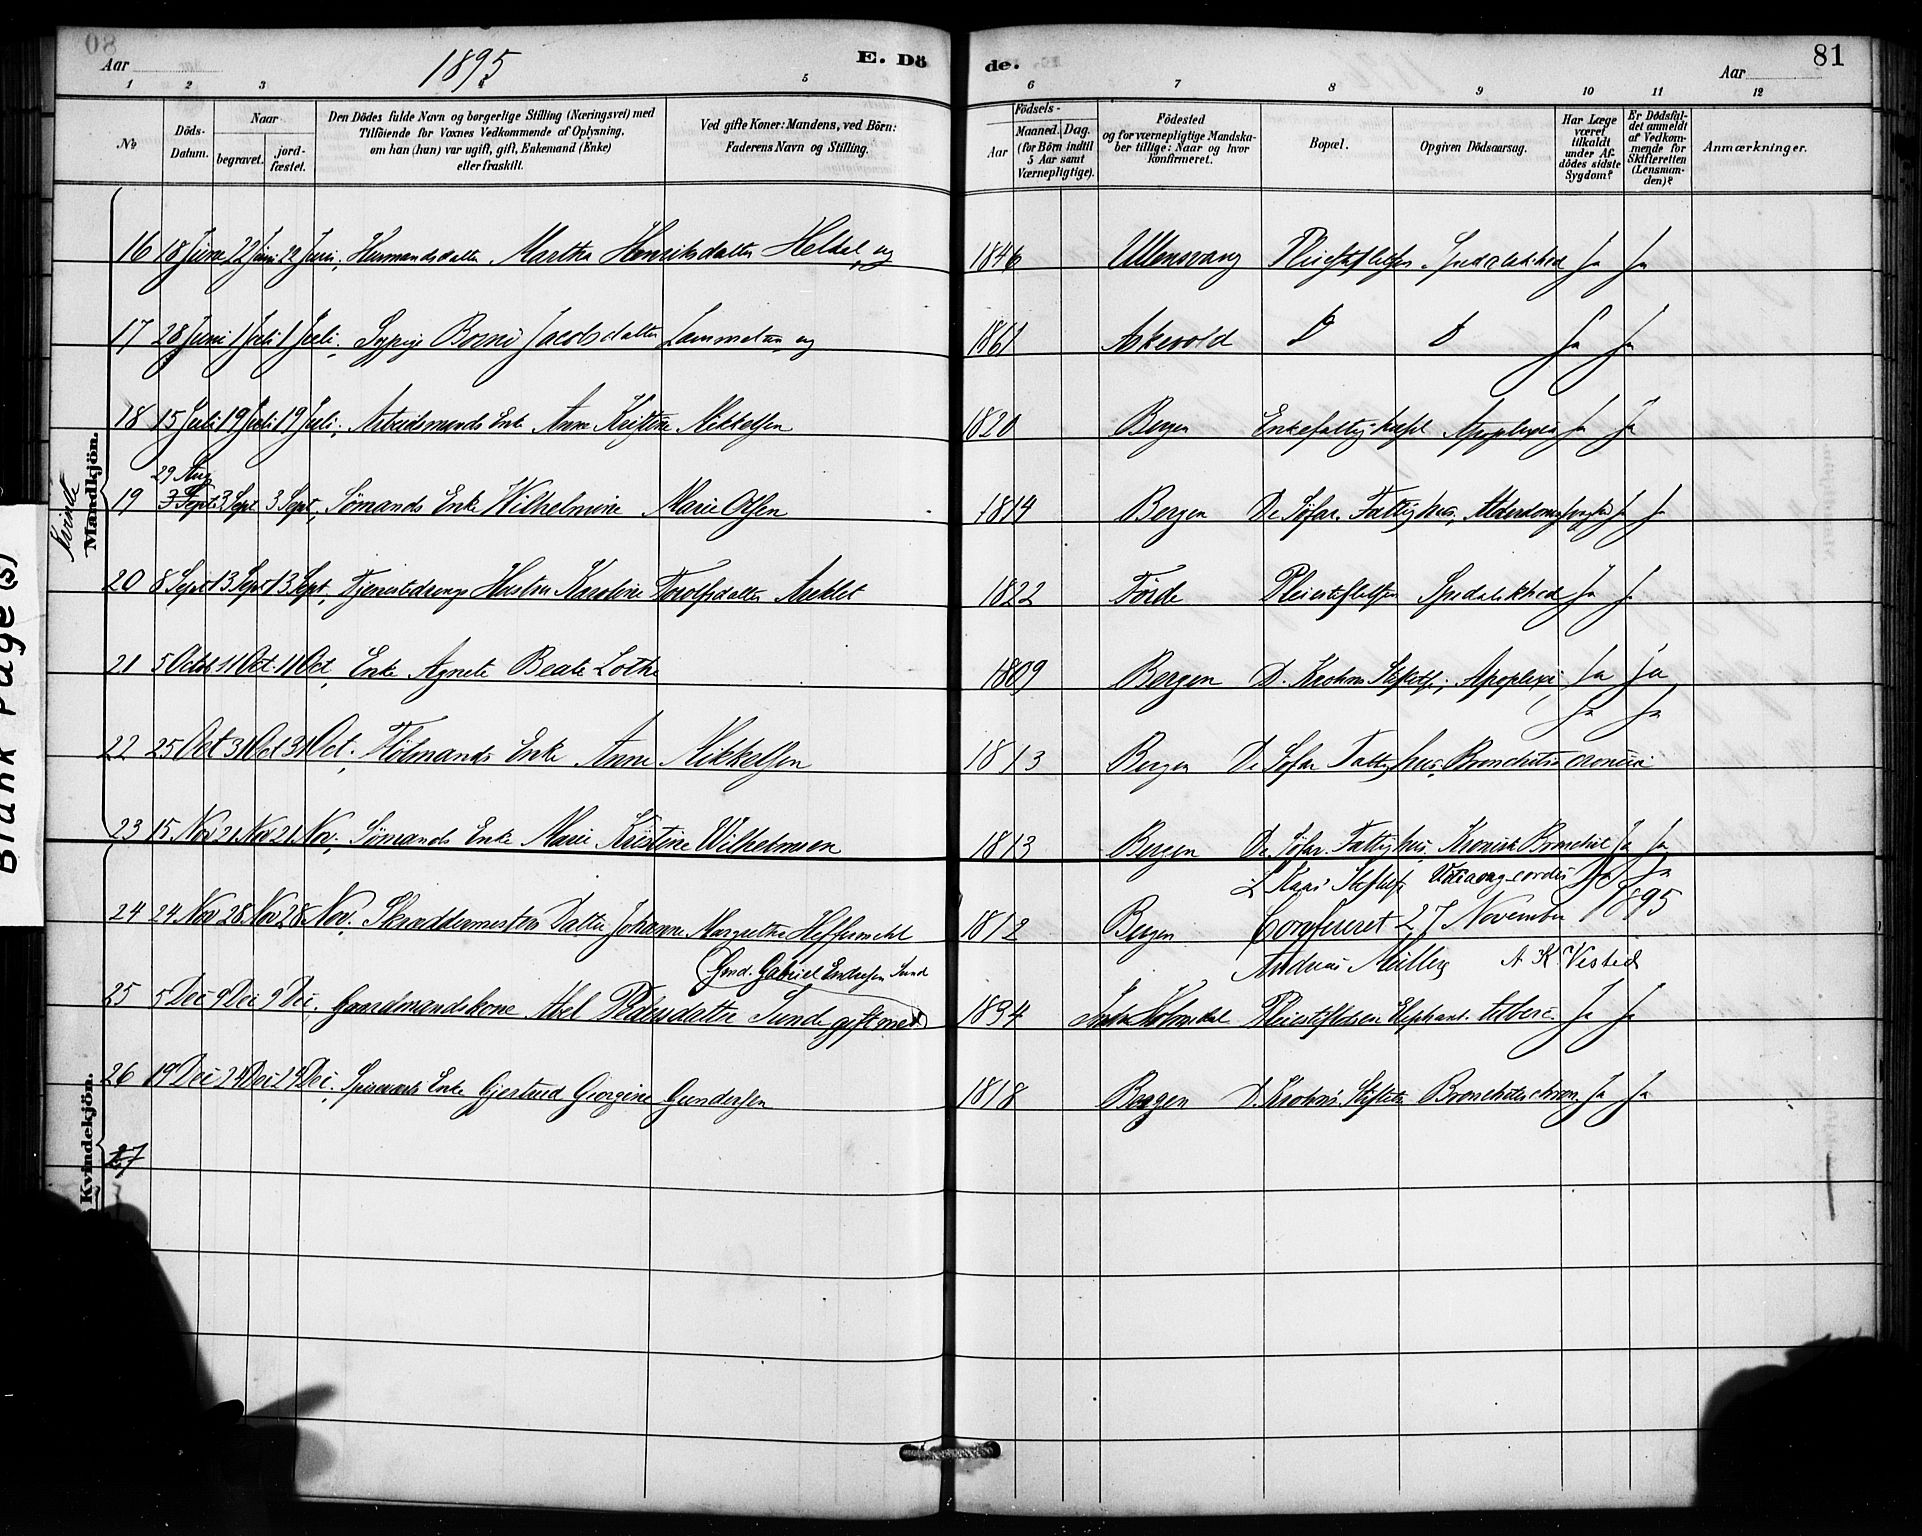 08
Aar
1895
E. Dö
de.
Aar
81
1 2 3 4 5 6 7 8 9 10 11 12
№
Döds-
Datum.
Naar
begravet.
jord-
fæstet.
Den Dödes fulde Navn og borgerlige Stilling (Næringsvei) med
Tilföiende for Voxnes Vedkommende af Oplysning,
om han (hun) var ugift, gift, Enkemand (Enke)
eller fraskilt.
Ved gifte Koner: Mandens, ved Börn:
Faderens Navn og Stilling.
Födsels-
Aar
Maaned. Dag.
(for Börn indtil
5 Aar samt
Værnepligtige).
Födested
og for værnepligtige Mandska-
ber tillige: Naar og hvor
konfirmeret.
Bopæl.
Opgiven Dödsaarsag.
Har Læge
været
tilkaldt
under Af-
dödes sidste
Sygdom?
Er Dödsfal-
det anmeldt
af Vedkom-
mende for
Skifteretten
(Lensman-
den)?
Anmærkninger.
Kvinde
Mandkjön.
16 18 Juni 22 Juni 22 Juni, Huusmandsdatter Martha Henriksdatter Heldal, ug 1846 Ullensvang Pleiestiftelsen Spedalskhed Ja Ja
17 28 Juni 1 Juli 1 Juli, Jacobsdatter ug 1861 Askevold Ja Ja
18 15 Juli 19 Juli 19 Juli, Arbeidsmands Enke Anne Kristine Mikkelsen 1820 Bergen Enkefattighuset Apoplexia Ja Ja
29 Aug
19 3 Sept 3 Sept 3 Sept, Sømands Enke Wilhelmine Marie Olsen 1814 Bergen De Søfar. Fattighus, Ja Ja
20 8 Sept 13 Sept 13 Sept, Tjenestedrengs Hustru Karoline Thorolfsdatter 1822 Förde Pleiestiftelsen Spedalskhed Ja Ja
21 5 Octob 11 Oct. 11 Oct, Enke Agnete Beate Lothe 1809 Bergen D. Krohns Stiftelse, Apoplexi, Ja Ja
Ja Ja
22 25 Oct 31 Oct 31 Oct. Enke Anne Mikkelsen 1813 Bergen De Søfar Fattighus, Bronchitis
23 15 Nov 21 Nov 21 Nov, Sømands Enke Marie Kristine Wilhelmsen 1813 Bergen De Søfar. Fattighus, Kronisk Bronchit Ja Ja
Stiftelse cordis Ja Ja
24 24 Nov 28 Nov 28 Nov, Skræddermesters Datter Johanne Margrethe 1812 Bergen Confereret 27 November 1895
Andreas Müller A. K. Visted
Gmd. Gabriel Endresen Sunde
25 5 Dec 9 Dec 9 Dec, Gaardmandskone Abel Pedersdatter Sunde gift med 1834 Pleiestiftelsen Ja Ja
Kvindekjön.
26 19 Dec 24 Dec 24 Dec, Enke Gjertrud Georgine Gundersen 1818 Bergen D. Krohns Stiftelse Bronchitis chron Ja Ja
27
Blank Page(s)